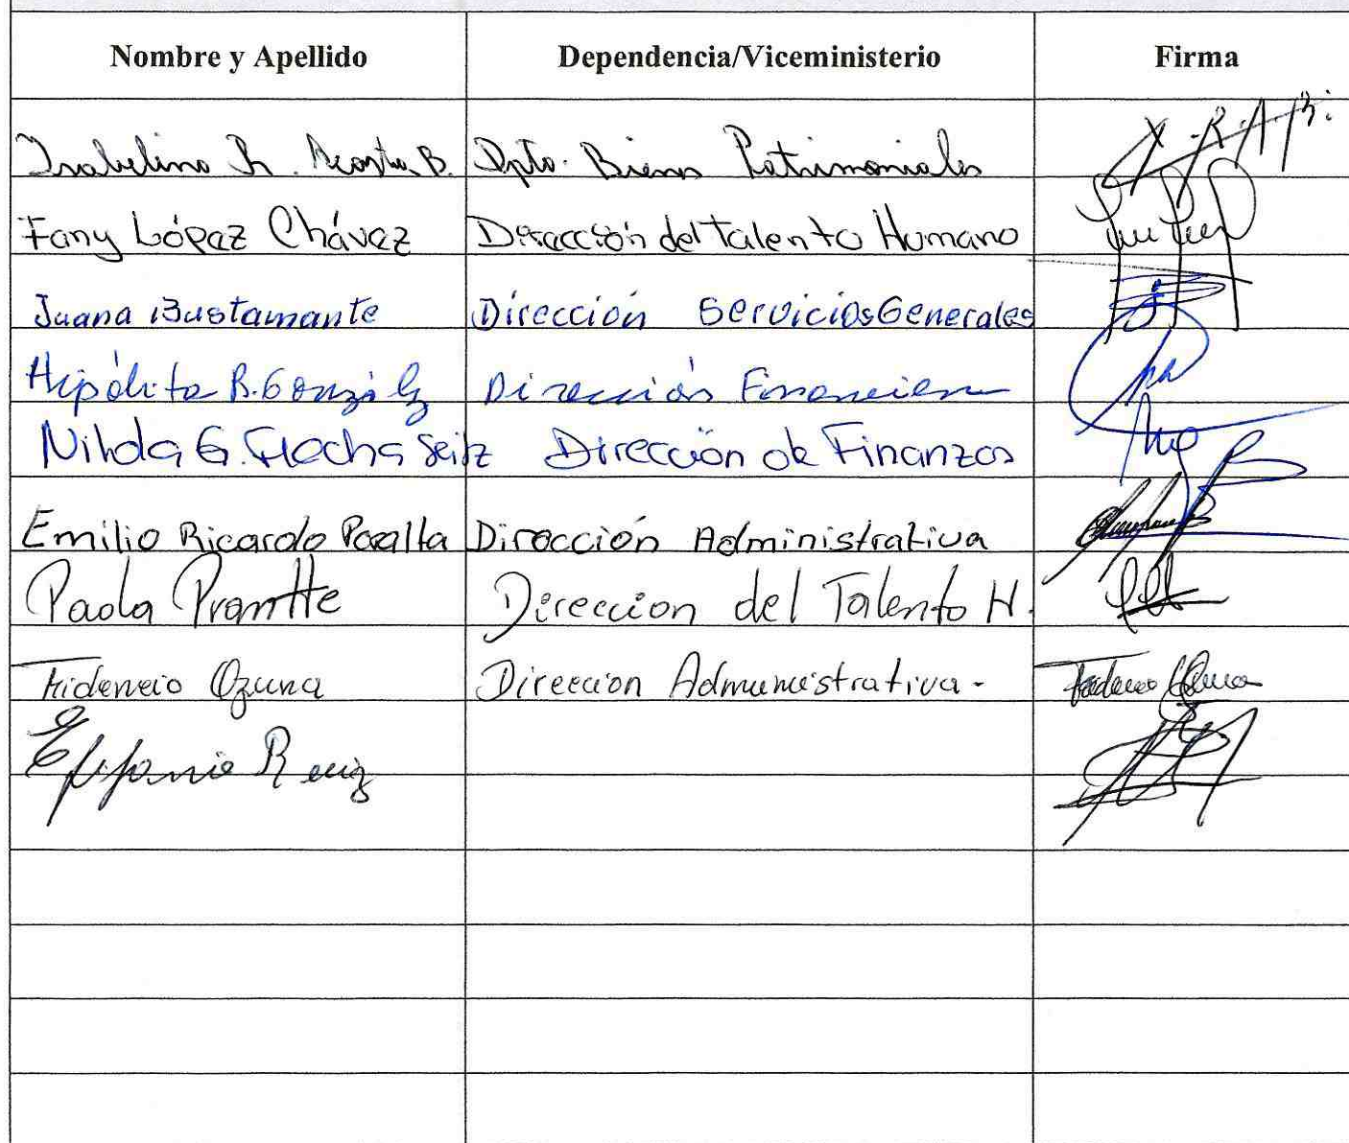 Nombre y Apellido Dependencia/Viceministerio Firma
Isabelino R. Acosta B. Dpto. Bienes Patrimoniales
Fany López Chávez Dirección del Talento Humano
Juana Bustamante Dirección Servicios Generales
Hipólito R. González Dirección Financiera
Nilda G. Seitz Dirección de Finanzas
Emilio Ricardo Peralta Dirección Administrativa
Paola Direccion del Talento H.
Fidencio Ozuna Direccion Administrativa.-
Epifanio Ruiz